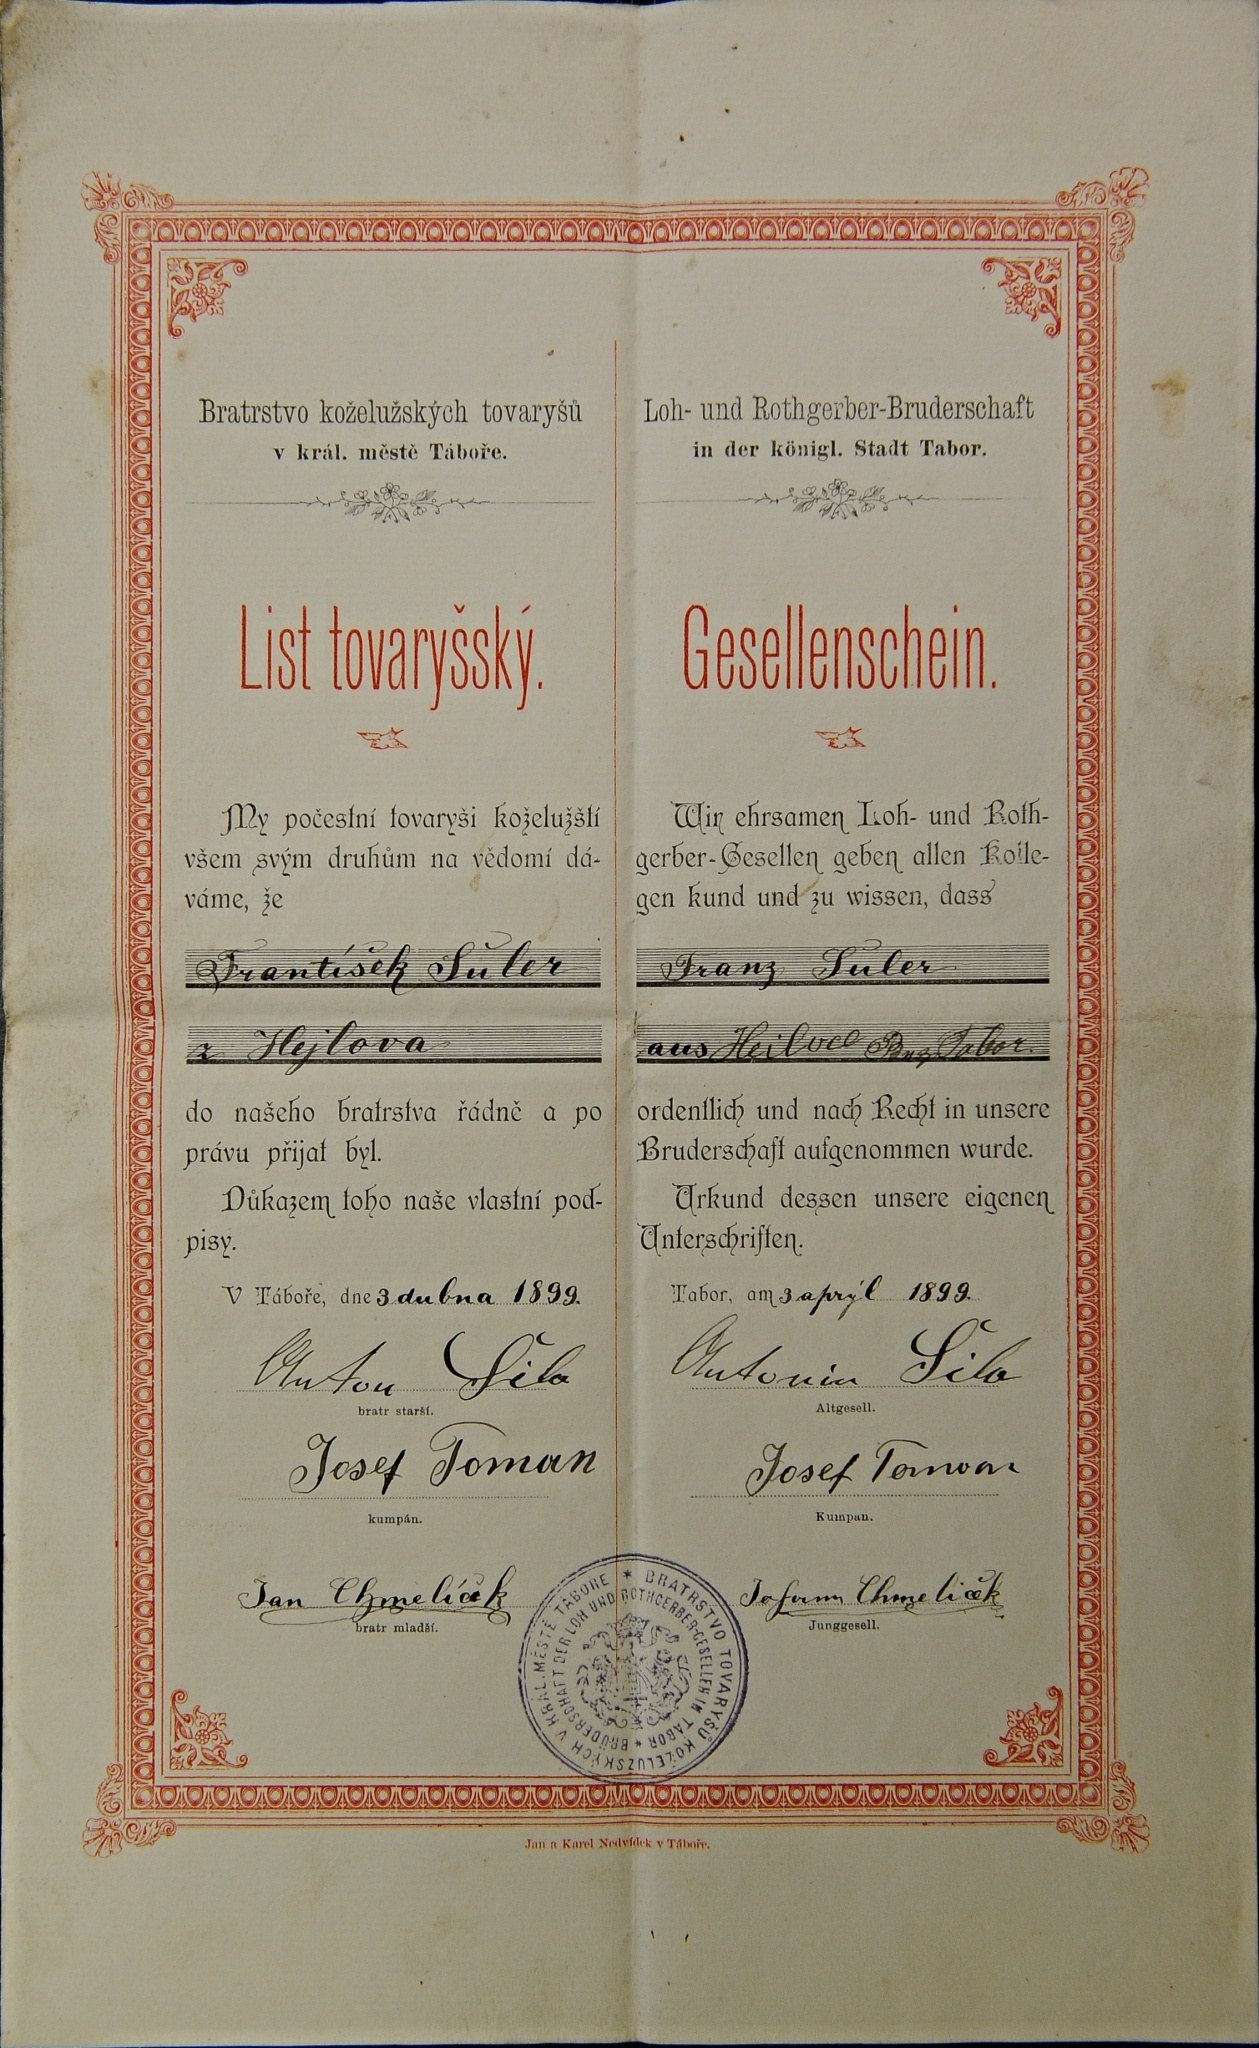 Bratrstvo koželužských tovaryšů
v král. městě Táboře.
List tovaryšský.
My počestní tovaryši koželužští
všem svým druhům na vědomí dá-
váme, že
František Šuler
z Hejlova
do našeho bratrstva řádně a po
právu přijat byl.
Důkazem toho naše vlastní pod-
pisy.
V Táboře, dne 3 dubna 1899.
Anton Šíla
bratr starší.
Josef Toman
kumpán.
Jan Chmelíček
bratr mladší.
Loh- und Rothgerber-Bruderschaft
in der königl. Stadt Tabor.
Gesellenschein.
Wir ehrsamen Loh- und Roth-
gerber-Gesellen geben allen Kolle-
gen kund und zu wissen, dass
Franz Šuler
aus Tabor
ordentlich und nach Recht in unsere
Bruderschaft aufgenommen wurde.
Urkund dessen unsere eigenen
Unterschriften.
Tabor, am 3 aprýl 1899.
Antonin Šíla
Altgesell.
Josef Toman
Kumpan.
Johann Chmeliček
Junggesell.
BRATRSTVO TOVARYŠŮ KOŽELUŽSKÝCH V KRÁL. MĚSTĚ TÁBOŘE
BRÜDERSCHAFT DER LOH UND ROTHGERBER-GESELLEN IM TABOR
Jan a Karel Nedvídek v Táboře.